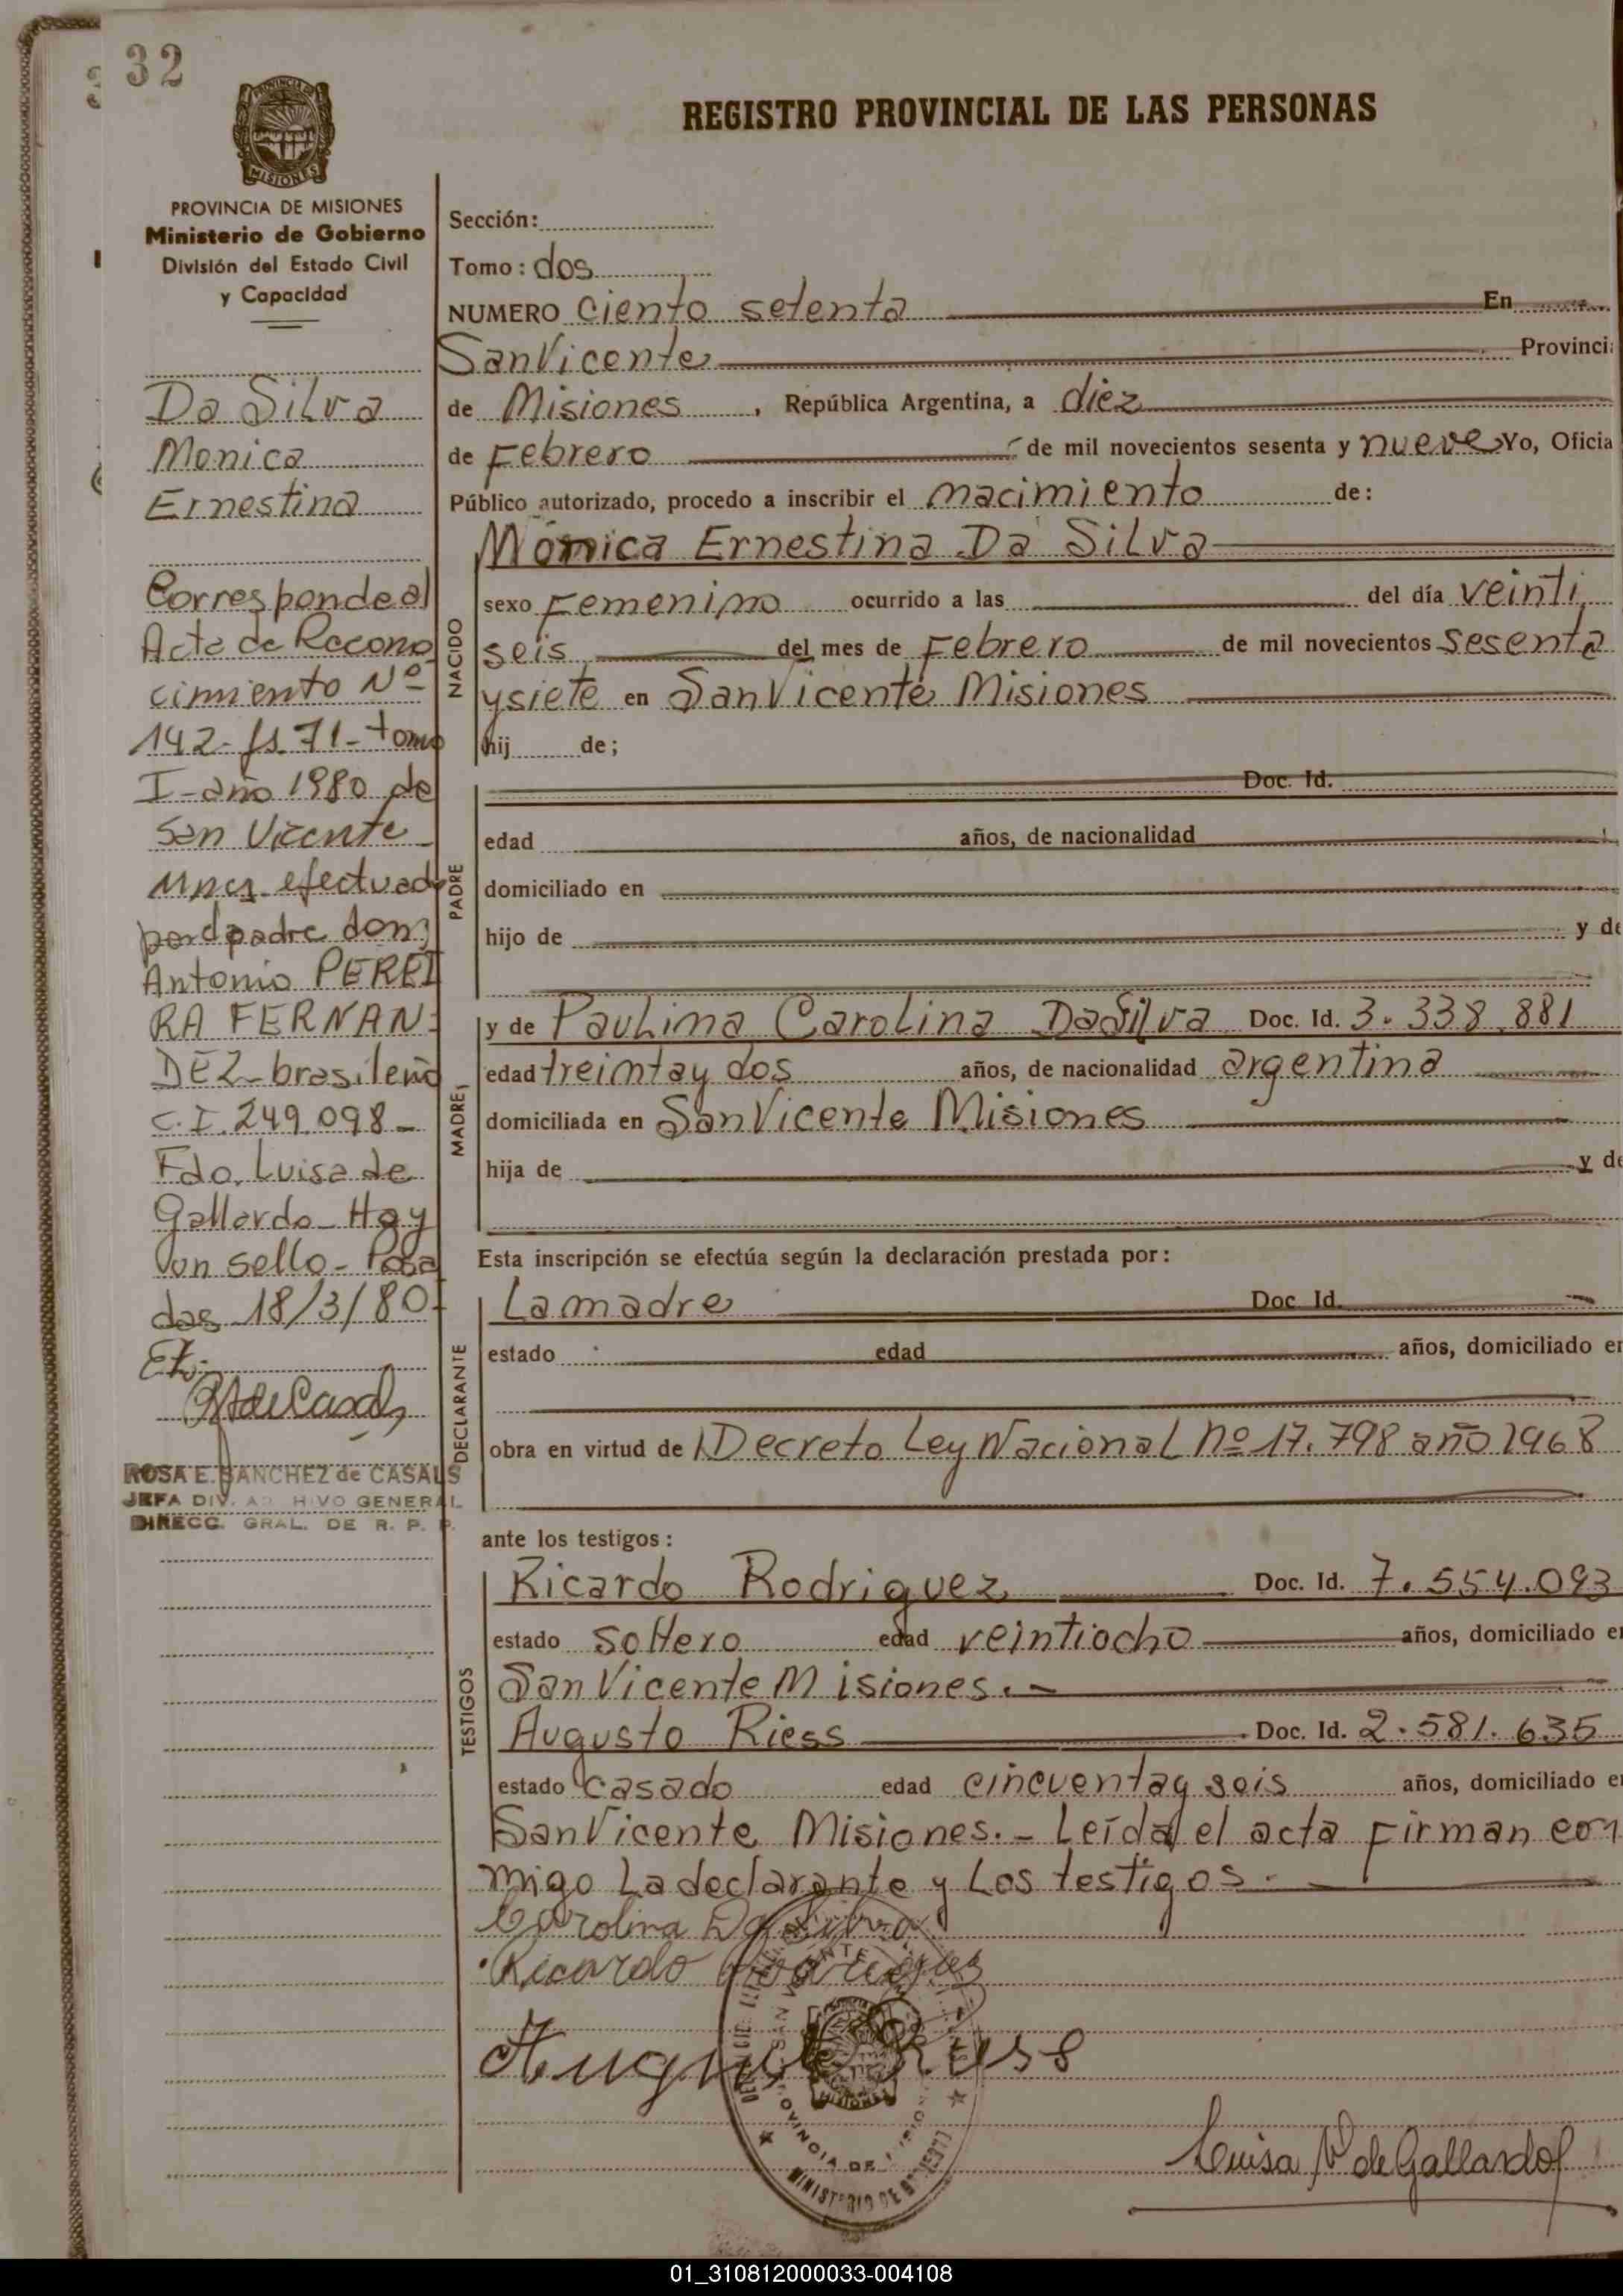 32
REGISTRO PROVINCIAL DE LAS PERSONAS
PROVINCIA DE
MISIONES
PROVINCIA DE MISIONES
Ministerio de Gobierno
División del Estado Civil
y Capacidad
Da Silva
Monica
Ernestina
Corresponde al
Acta de Recono
cimiento Nº
142- fs 71- tomo
I- año 1980 de
San Vicente
Mnes efectuado
por el padre don
Antonio PEREI
RA FERNAN-
DEZ- brasileño
C.I. 249.098-
Fdo. Luisa de
Gallardo- Hay
un sello- Posa
das 18/3/80-
ROSA E. SANCHEZ de CASALS
JEFA DIV. ARCHIVO GENERAL
DIRECC. GRAL. DE R. P. P.
Sección:
Tomo: dos
NUMERO ciento setenta En
San Vicente Provinci
de Misiones, República Argentina, a diez
de Febrero de mil novecientos sesenta y nueve Yo, Oficia
Público autorizado, procedo a inscribir el nacimiento de:
Mónica Ernestina Da Silva
NACIDO
sexo Femenino ocurrido a las del día veinti
seis del mes de Febrero de mil novecientos sesenta
y siete en San Vicente Misiones
hij de;
PADRE
Doc. Id.
edad años, de nacionalidad
domiciliado en
hijo de y de
MADRE
y de Paulina Carolina Da Silva Doc. Id. 3.338.881
edad treinta y dos años, de nacionalidad argentina
domiciliada en San Vicente Misiones
hija de y de
Esta inscripción se efectúa según la declaración prestada por:
DECLARANTE
La madre Doc. Id.
estado edad años, domiciliado en
obra en virtud de Decreto Ley Nacional Nº 17.798 año 1968
ante los testigos:
TESTIGOS
Ricardo Rodriguez Doc. Id. 7.554.093
estado soltero edad veintiocho años, domiciliado en
San Vicente Misiones.-
Augusto Riess Doc. Id. 2.581.635
estado casado edad cincuenta y seis años, domiciliado en
San Vicente Misiones.- Leída el acta Firman con
migo La declarante y Los testigos.
Carolina Da Silva
Ricardo Rodriguez
August Riess
Luisa V de Gallardo
01_310812000033-004108